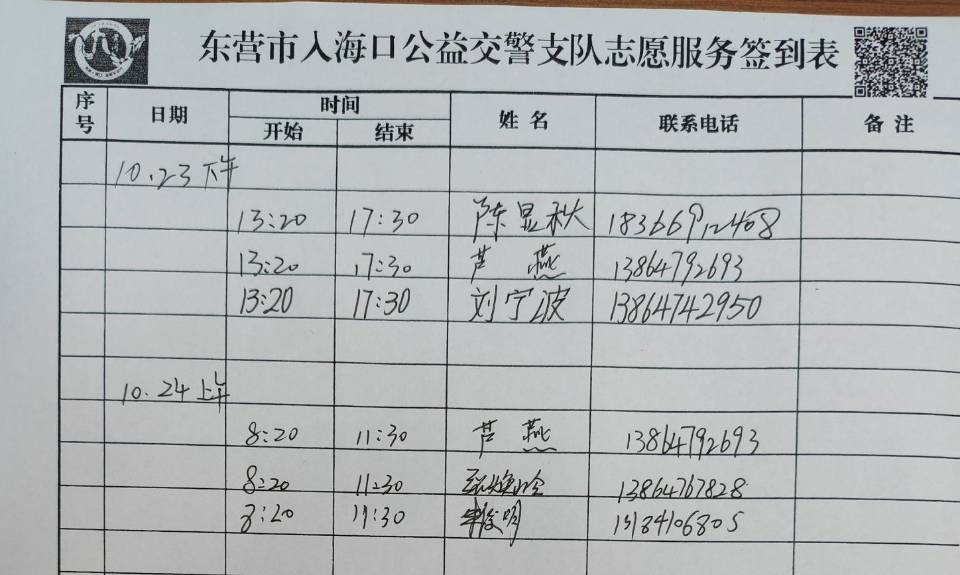 东营市入海口公益交警支队志愿服务签到表
序号 日期 时间 开始 结束 姓名 联系电话 备注
10.23 下午
13:20 17:30 陈显秋 18366912408
13:20 17:30 芦燕 13864792693
13:20 17:30 刘宁波 13864742950
10.24 上午
8:20 11:30 芦燕 13864792693
8:20 11:30 13864767828
8:20 11:30